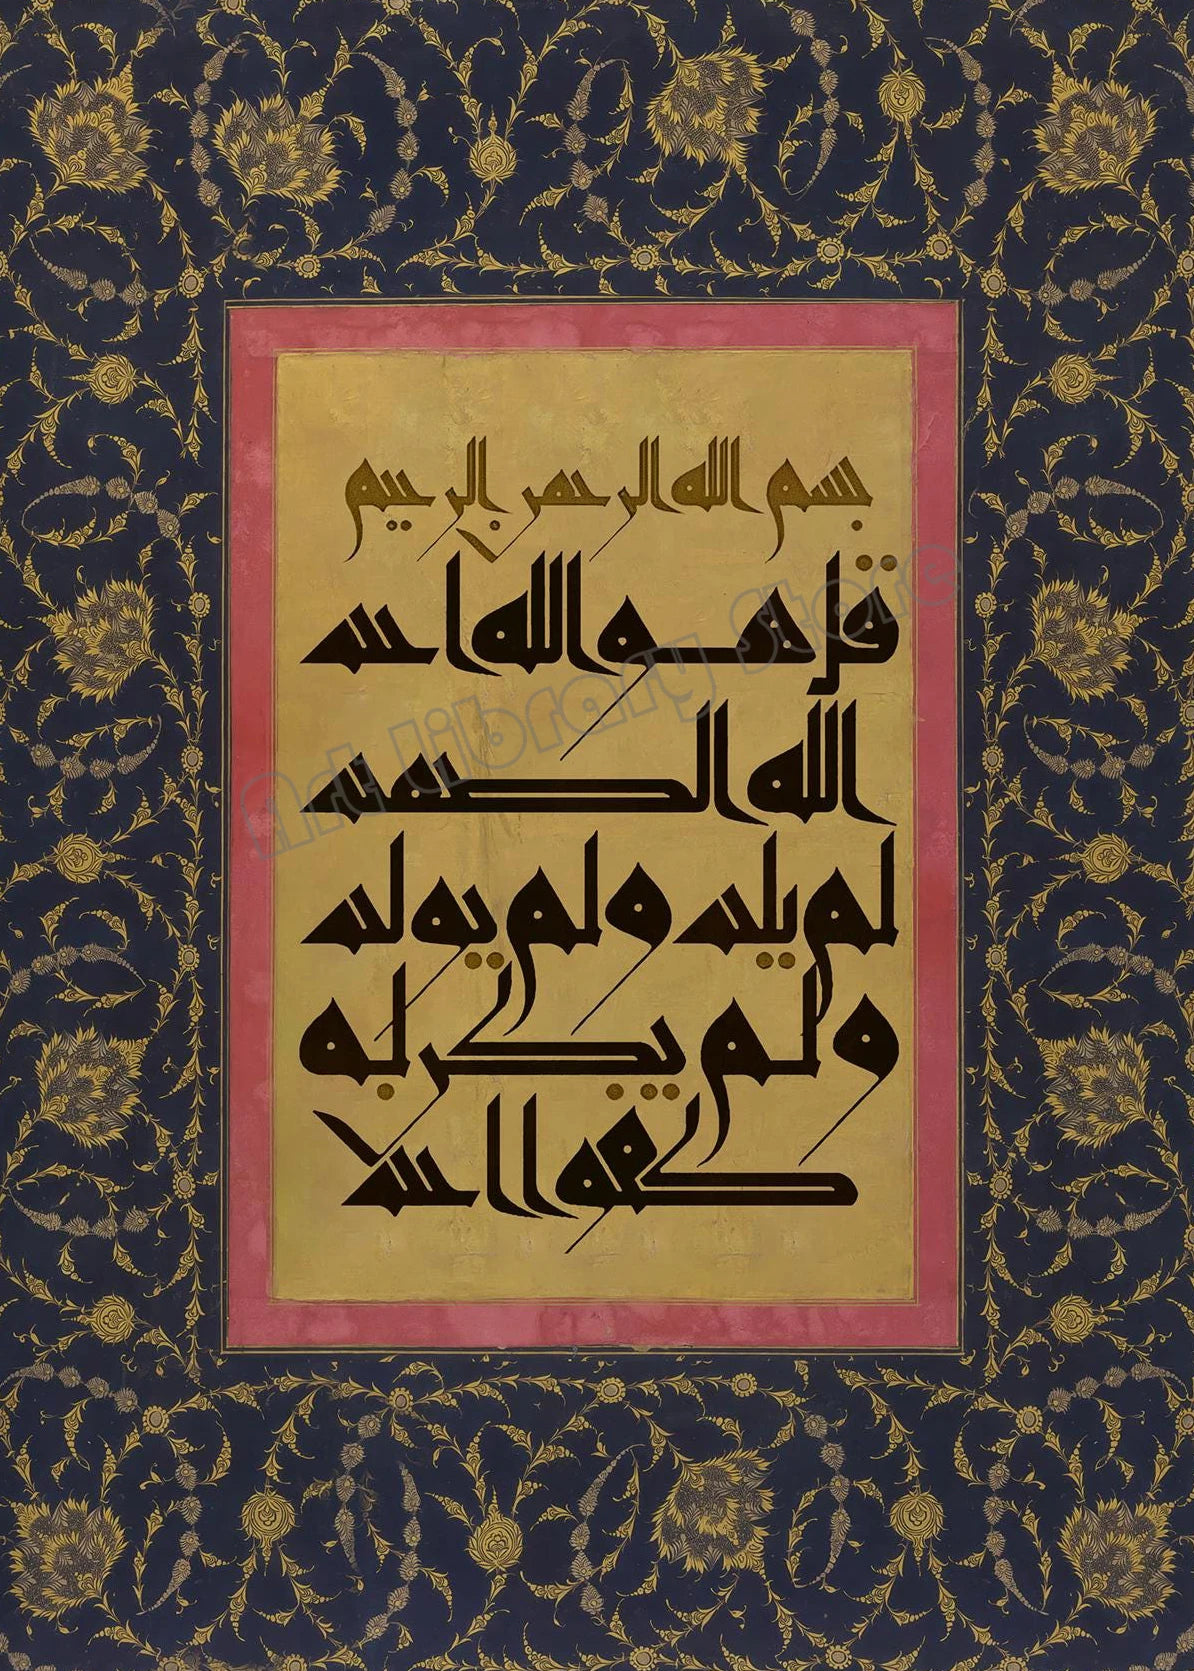 بسم الله الرحمن الرحيم
قل هو الله احد
الله الصمد
لم يلد ولم يولد
ولم يكن له
كفوا احد
Art Library Store